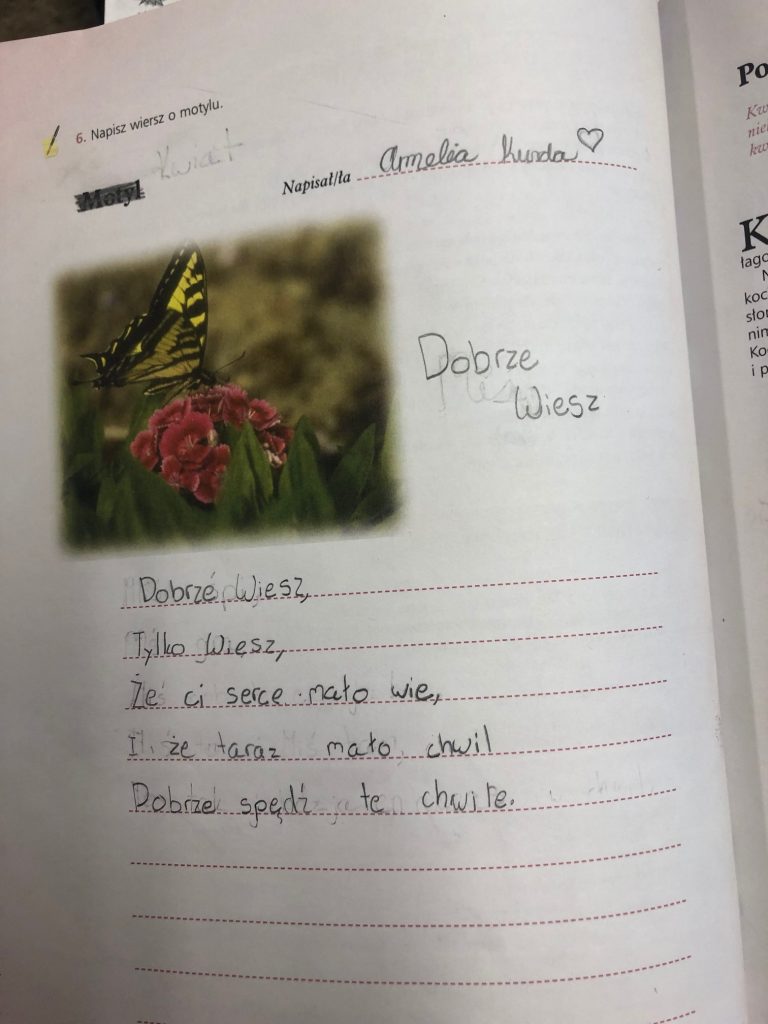 6. Napisz wiersz o motylu.
Kwiat
Motyl
Napisał/ła Amelia Kurda
Dobrze
Wiesz
Dobrze Wiesz,
Tylko Wiesz,
Że ci serce mało wie,
I że taraz mało chwil
Dobrze spędź te chwile.
Po
K
łago
N
koc
słoń
nim
Ko
i p